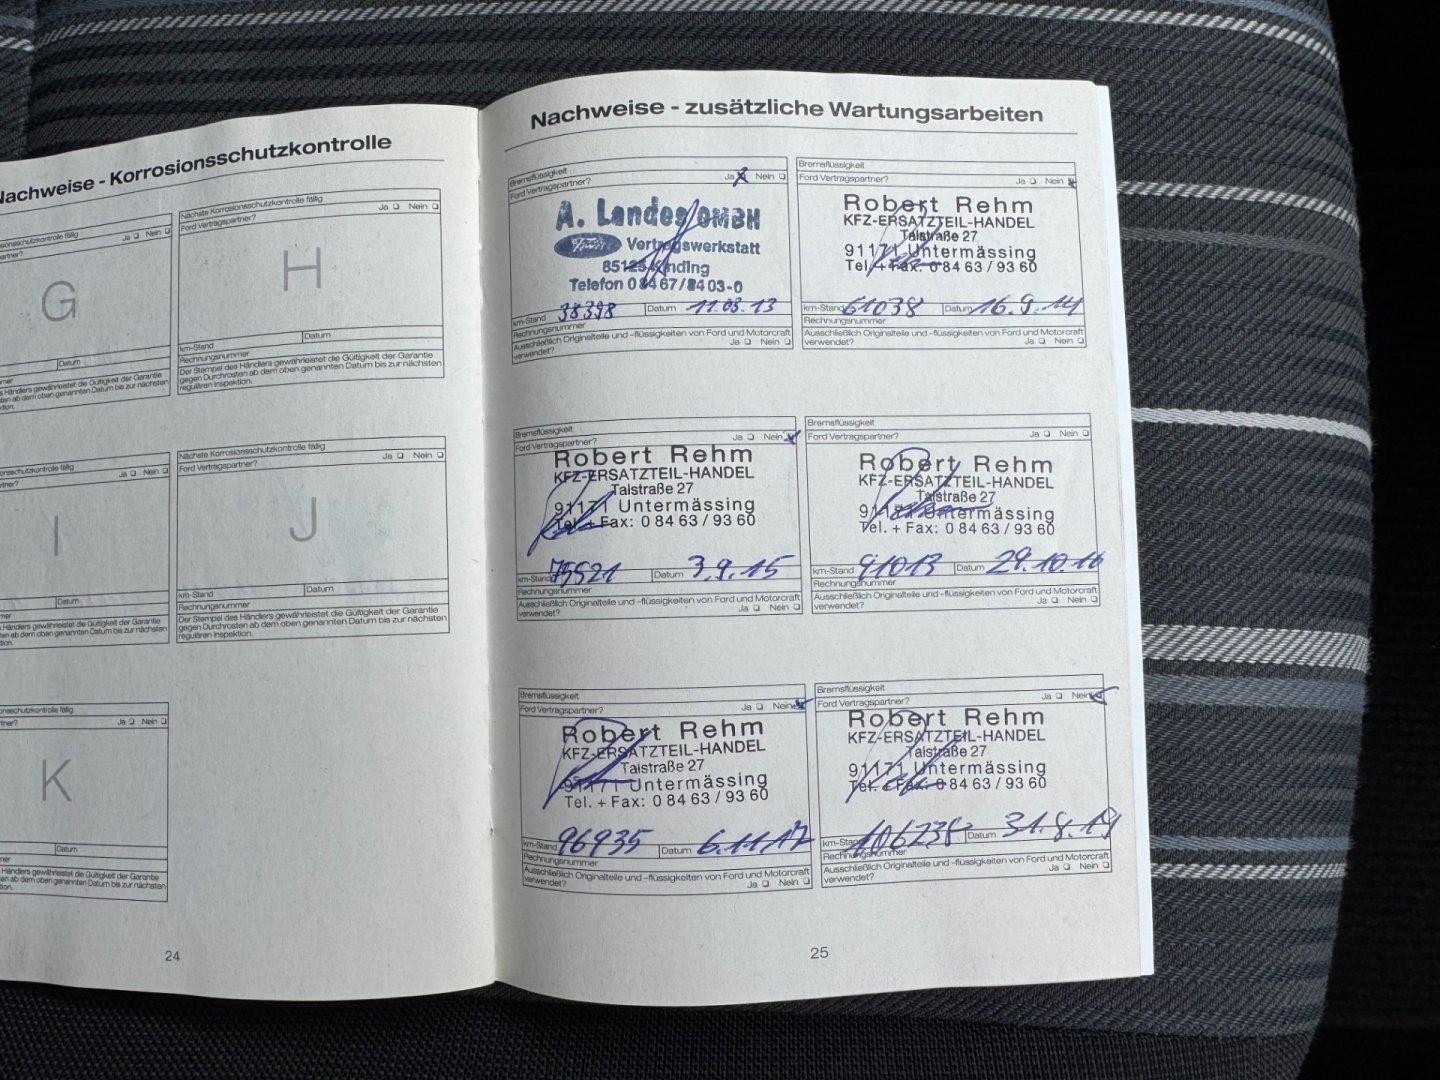 Nachweise - Korrosionsschutzkontrolle
Korrosionsschutzkontrolle fällig
Ja Nein
G
Datum
Händlers gewährleistet die Gültigkeit der Garantie
ab dem oben genannten Datum bis zur nächsten
Nächste Korrosionsschutzkontrolle fällig
Ford Vertragspartner? Ja Nein
H
km-Stand Datum
Rechnungsnummer
Der Stempel des Händlers gewährleistet die Gültigkeit der Garantie
gegen Durchrosten ab dem oben genannten Datum bis zur nächsten
regulären Inspektion.
Ja Nein
I
Datum
Händlers gewährleistet die Gültigkeit der Garantie
ab dem oben genannten Datum bis zur nächsten
Nächste Korrosionsschutzkontrolle fällig
Ford Vertragspartner? Ja Nein
J
km-Stand Datum
Rechnungsnummer
Der Stempel des Händlers gewährleistet die Gültigkeit der Garantie
gegen Durchrosten ab dem oben genannten Datum bis zur nächsten
regulären Inspektion.
Ja Nein
K
Datum
Händlers gewährleistet die Gültigkeit der Garantie
ab dem oben genannten Datum bis zur nächsten
24
Nachweise - zusätzliche Wartungsarbeiten
Bremsflüssigkeit
Ford Vertragspartner? Ja Nein
A. Landes GMBH
Ford Vertragswerkstatt
85125 Kinding
Telefon 0 84 67/84 03-0
km-Stand 38398 Datum 11.03.13
Rechnungsnummer
Ausschließlich Originalteile und -flüssigkeiten von Ford und Motorcraft
verwendet? Ja Nein
Bremsflüssigkeit
Ford Vertragspartner? Ja Nein
Robert Rehm
KFZ-ERSATZTEIL-HANDEL
Talstraße 27
91171 Untermässing
Tel. + Fax: 0 84 63 / 93 60
km-Stand 61038 Datum 16.9.14
Rechnungsnummer
Ausschließlich Originalteile und -flüssigkeiten von Ford und Motorcraft
verwendet? Ja Nein
Bremsflüssigkeit
Ford Vertragspartner? Ja Nein
Robert Rehm
KFZ-ERSATZTEIL-HANDEL
Talstraße 27
91171 Untermässing
Tel. + Fax: 0 84 63 / 93 60
km-Stand 75521 Datum 3.9.15
Rechnungsnummer
Ausschließlich Originalteile und -flüssigkeiten von Ford und Motorcraft
verwendet? Ja Nein
Bremsflüssigkeit
Ford Vertragspartner? Ja Nein
Robert Rehm
KFZ-ERSATZTEIL-HANDEL
Talstraße 27
91171 Untermässing
Tel. + Fax: 0 84 63 / 93 60
km-Stand 91013 Datum 29.10.16
Rechnungsnummer
Ausschließlich Originalteile und -flüssigkeiten von Ford und Motorcraft
verwendet? Ja Nein
Bremsflüssigkeit
Ford Vertragspartner? Ja Nein
Robert Rehm
KFZ-ERSATZTEIL-HANDEL
Talstraße 27
91171 Untermässing
Tel. + Fax: 0 84 63 / 93 60
km-Stand 96935 Datum 6.11.17
Rechnungsnummer
Ausschließlich Originalteile und -flüssigkeiten von Ford und Motorcraft
verwendet? Ja Nein
Bremsflüssigkeit
Ford Vertragspartner? Ja Nein
Robert Rehm
KFZ-ERSATZTEIL-HANDEL
Talstraße 27
91171 Untermässing
Tel. + Fax: 0 84 63 / 93 60
km-Stand 106238 Datum 31.8.19
Rechnungsnummer
Ausschließlich Originalteile und -flüssigkeiten von Ford und Motorcraft
verwendet? Ja Nein
25